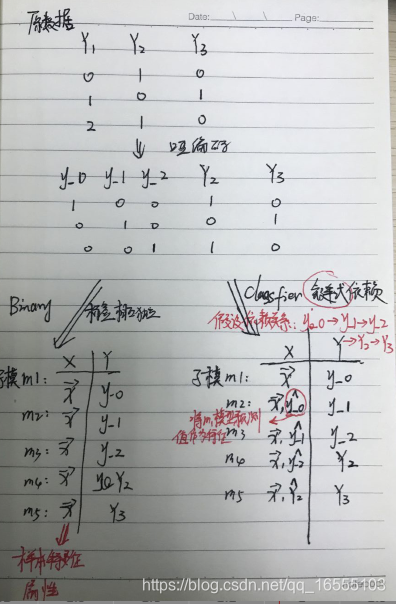 原数据
Date: Page:
Y1 Y2 Y3
0 1 0
1 0 1
2 1 0
哑编码
y_0 y_1 y_2 Y2 Y3
1 0 0 1 0
0 1 0 0 1
0 0 1 1 0
Binary 标签相互独立
X Y
子模m1: x→ y_0
m2: x→ y_1
m3: x→ y_2
m4: x→ Y2
m5: x→ Y3
样本特征
属性
Classfier 链式依赖
假设依赖关系: y_0→y_1→y_2
→Y2→Y3
X Y
子模m1: x→ y_0
m2: x→, ŷ_0 y_1
将m1模型预测
值作为特征
m3 x→, ŷ_1 y_2
m4 x→, ŷ_2 Y2
m5 x→, Ŷ2 Y3
https://blog.csdn.net/qq_16555103